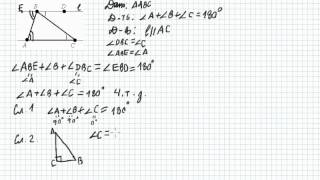 E B D ℓ
A C
Дано: ΔABC
Д-ть: ∠A+∠B+∠C=180°
Д-во: ℓ∥AC
∠DBC=∠C
∠ABE=∠A
∠ABE+∠B+∠DBC=∠EBD=180°
∠A ∠C
∠A+∠B+∠C=180° ч.т.д.
Сл. 1 ∠A+∠B+∠C=180°
90° 90° 0°
Сл. 2. ∠C=
A
C B